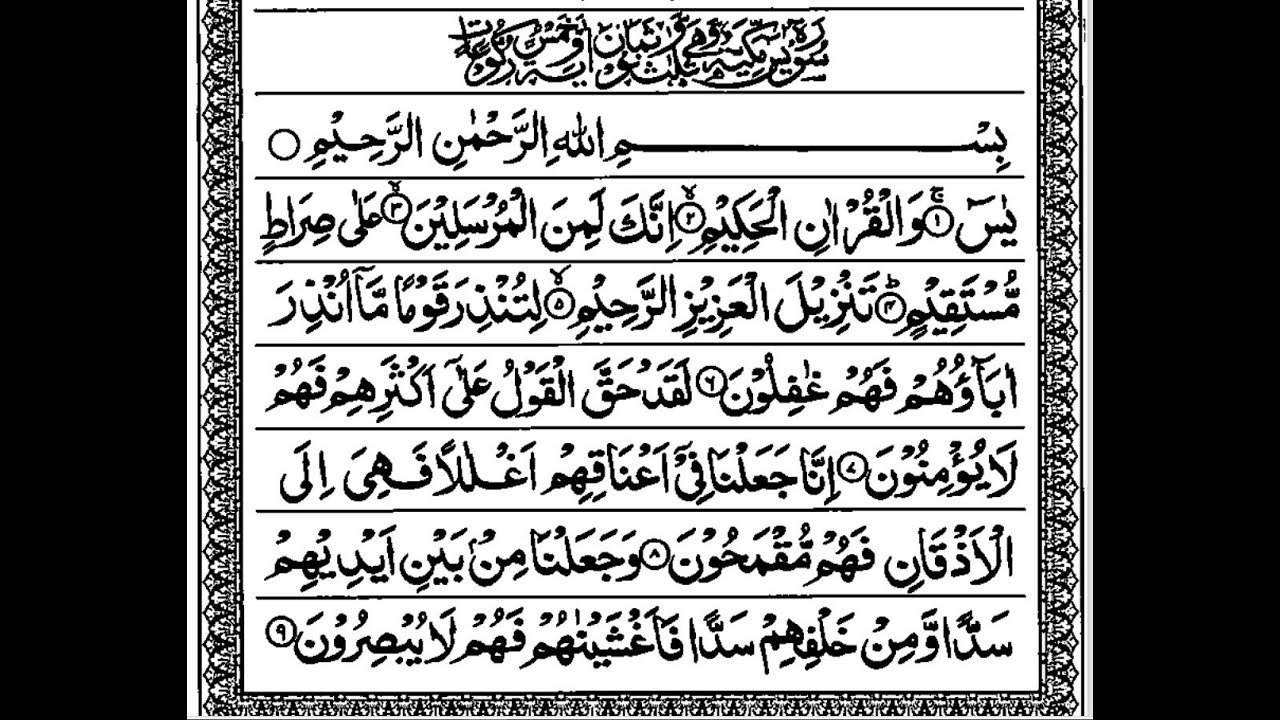 سورة يس مكية وهي ثلث وثمانون اية وخمس ركوعات
بِسْمِ اللهِ الرَّحْمٰنِ الرَّحِيْمِ
يٰسٓ ۚ﴿۱﴾ وَالْقُرْاٰنِ الْحَكِيْمِ ۙ﴿۲﴾ اِنَّكَ لَمِنَ الْمُرْسَلِيْنَ ۙ﴿۳﴾ عَلٰى صِرَاطٍ
مُّسْتَقِيْمٍ ؕ﴿۴﴾ تَنْزِيْلَ الْعَزِيْزِ الرَّحِيْمِ ۙ﴿۵﴾ لِتُنْذِرَ قَوْمًا مَّاۤ اُنْذِرَ
اٰبَآؤُهُمْ فَهُمْ غٰفِلُوْنَ ﴿۶﴾ لَقَدْ حَقَّ الْقَوْلُ عَلٰۤى اَكْثَرِهِمْ فَهُمْ
لَا يُؤْمِنُوْنَ ﴿۷﴾ اِنَّا جَعَلْنَا فِيْۤ اَعْنَاقِهِمْ اَغْلٰلًا فَهِىَ اِلَى
الْاَذْقَانِ فَهُمْ مُّقْمَحُوْنَ ﴿۸﴾ وَجَعَلْنَا مِنْۢ بَيْنِ اَيْدِيْهِمْ
سَدًّا وَّمِنْ خَلْفِهِمْ سَدًّا فَاَغْشَيْنٰهُمْ فَهُمْ لَا يُبْصِرُوْنَ ﴿۹﴾